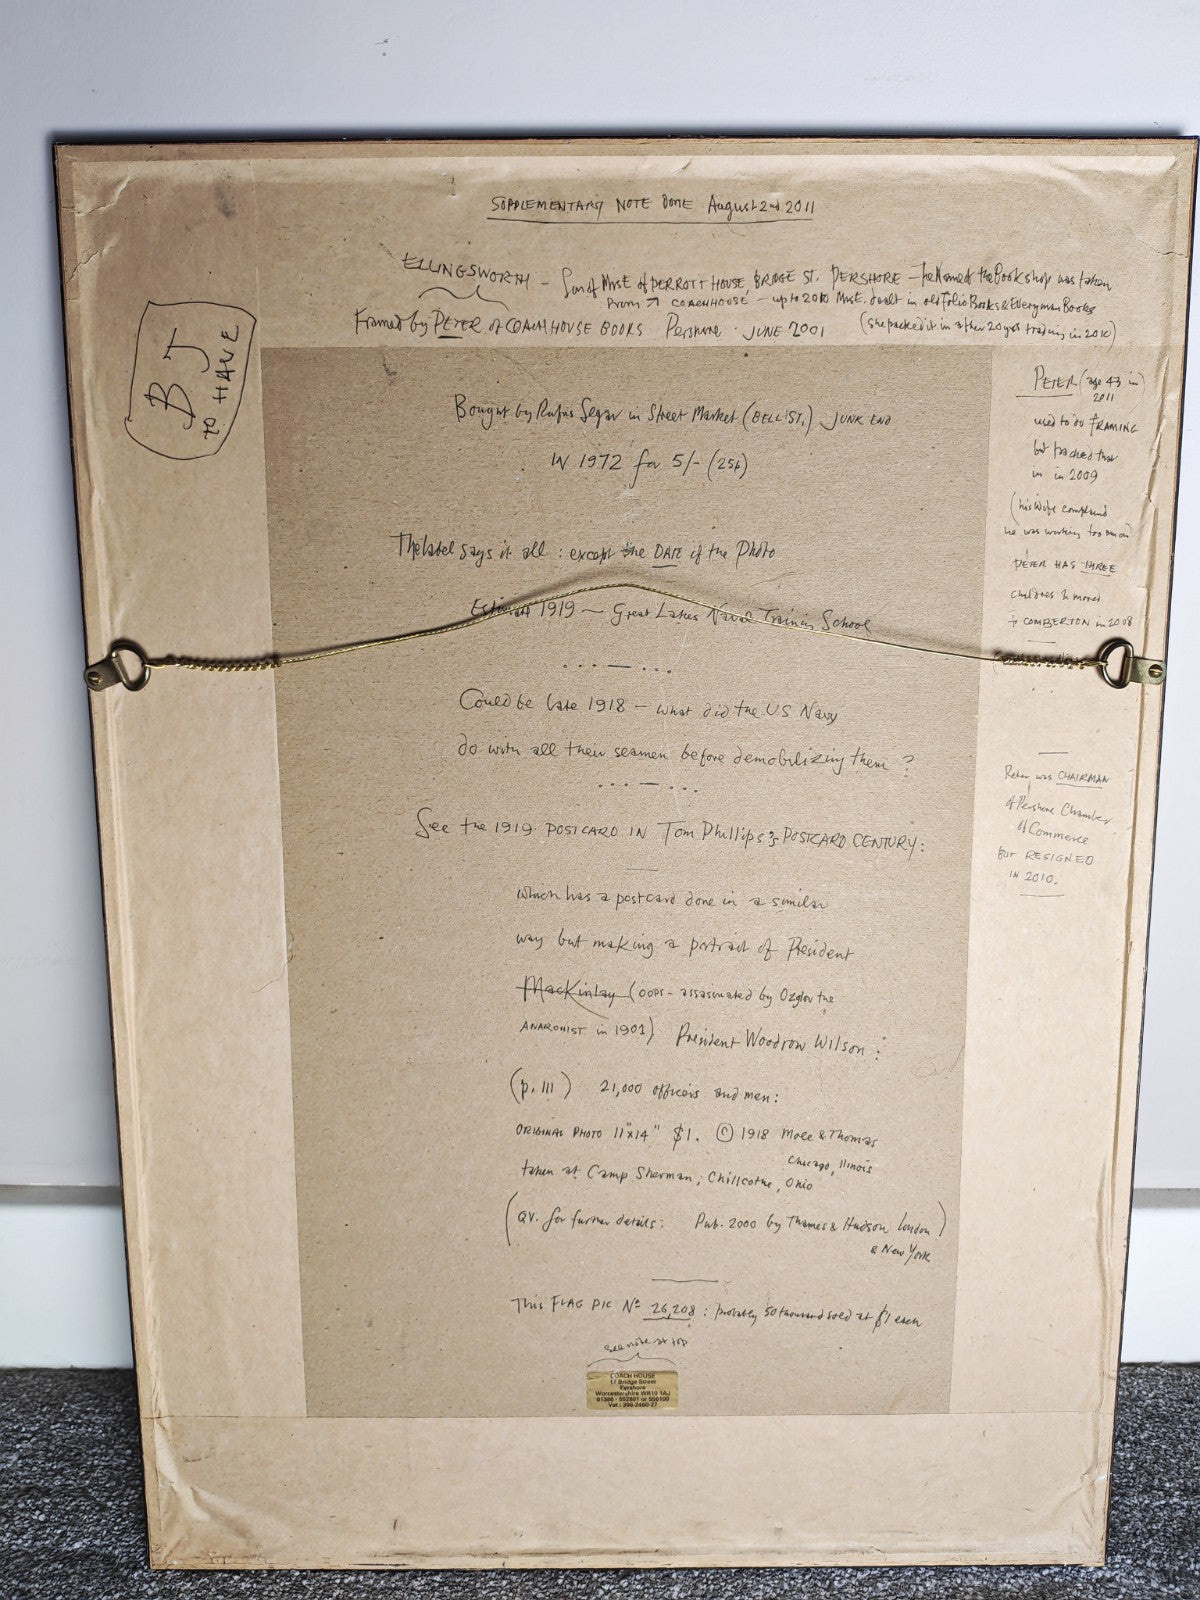 SUPPLEMENTARY NOTE DONE August 2nd 2011
ELLINGSWORTH - Son of Mrs E of PERROTT HOUSE, BRIDGE ST. PERSHORE - The Name of the Bookshop was taken
From ↗ COACHHOUSE - up to 2010 Mrs E. dealt in old Folio Books & Everyman Books
Framed by PETER of COACHHOUSE BOOKS Pershore. JUNE 2001 (She packed it in after 20 yrs trading in 2010)
BJ
TO HAVE
Bought by Rufus Segar in Street Market (BELL ST.) JUNK END
IN 1972 for 5/- (25p)
The label says it all: except the DATE of the Photo
Estimate 1919 - Great Lakes Naval Training School
Could be late 1918 - what did the US Navy
do with all their seamen before demobilizing them?
See the 1919 POSTCARD IN Tom Phillips's POSTCARD CENTURY:
which has a postcard done in a similar
way but making a portrait of President
MacKinlay (oops - assasinated by Ozglov the
ANARCHIST in 1901) President Woodrow Wilson:
(p.111) 21,000 officers and men:
ORIGINAL PHOTO 11"x14" $1. © 1918 Mole & Thomas
Chicago, Illinois
taken at Camp Sherman, Chillcothe, Ohio
(QV. for further details: Pub. 2000 by Thames & Hudson London)
& New York
This FLAG PIC No 26,208: probably 50 thousand sold at $1 each
see note at top
COACH HOUSE
17 Bridge Street
Pershore
Worcestershire WR10 1AJ
Vat: 396-2460-27
PETER (age 43 in
2011
used to do FRAMING
but packed that
in in 2009
(his Wife complained
he was working too much)
PETER HAS THREE
children & moved
to COMBERTON in 2008
Peter was CHAIRMAN
of Pershore Chamber
of Commerce
but RESIGNED
IN 2010.